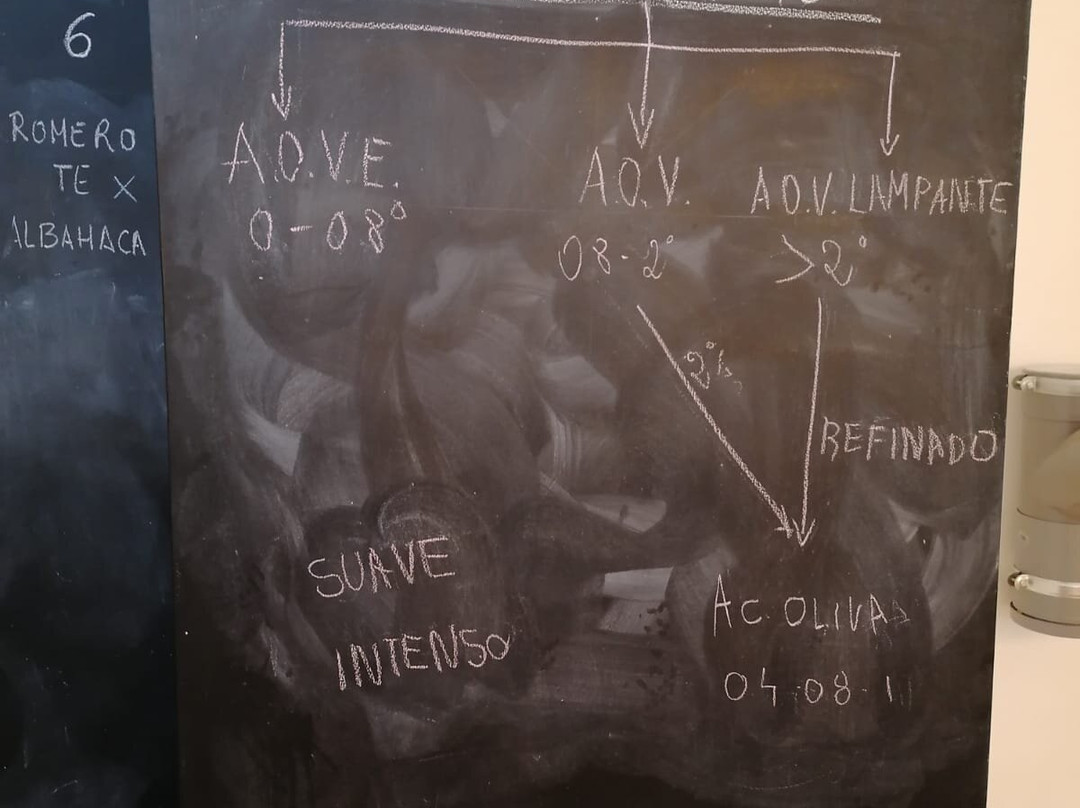 6
ROMERO
TE X
ALBAHACA
A.O.V.E.
0-08°
A.O.V.
08-2°
A O.V. LAMPANTE
>2°
REFINADO
SUAVE
INTENSO
AC. OLIVA
04-08-1